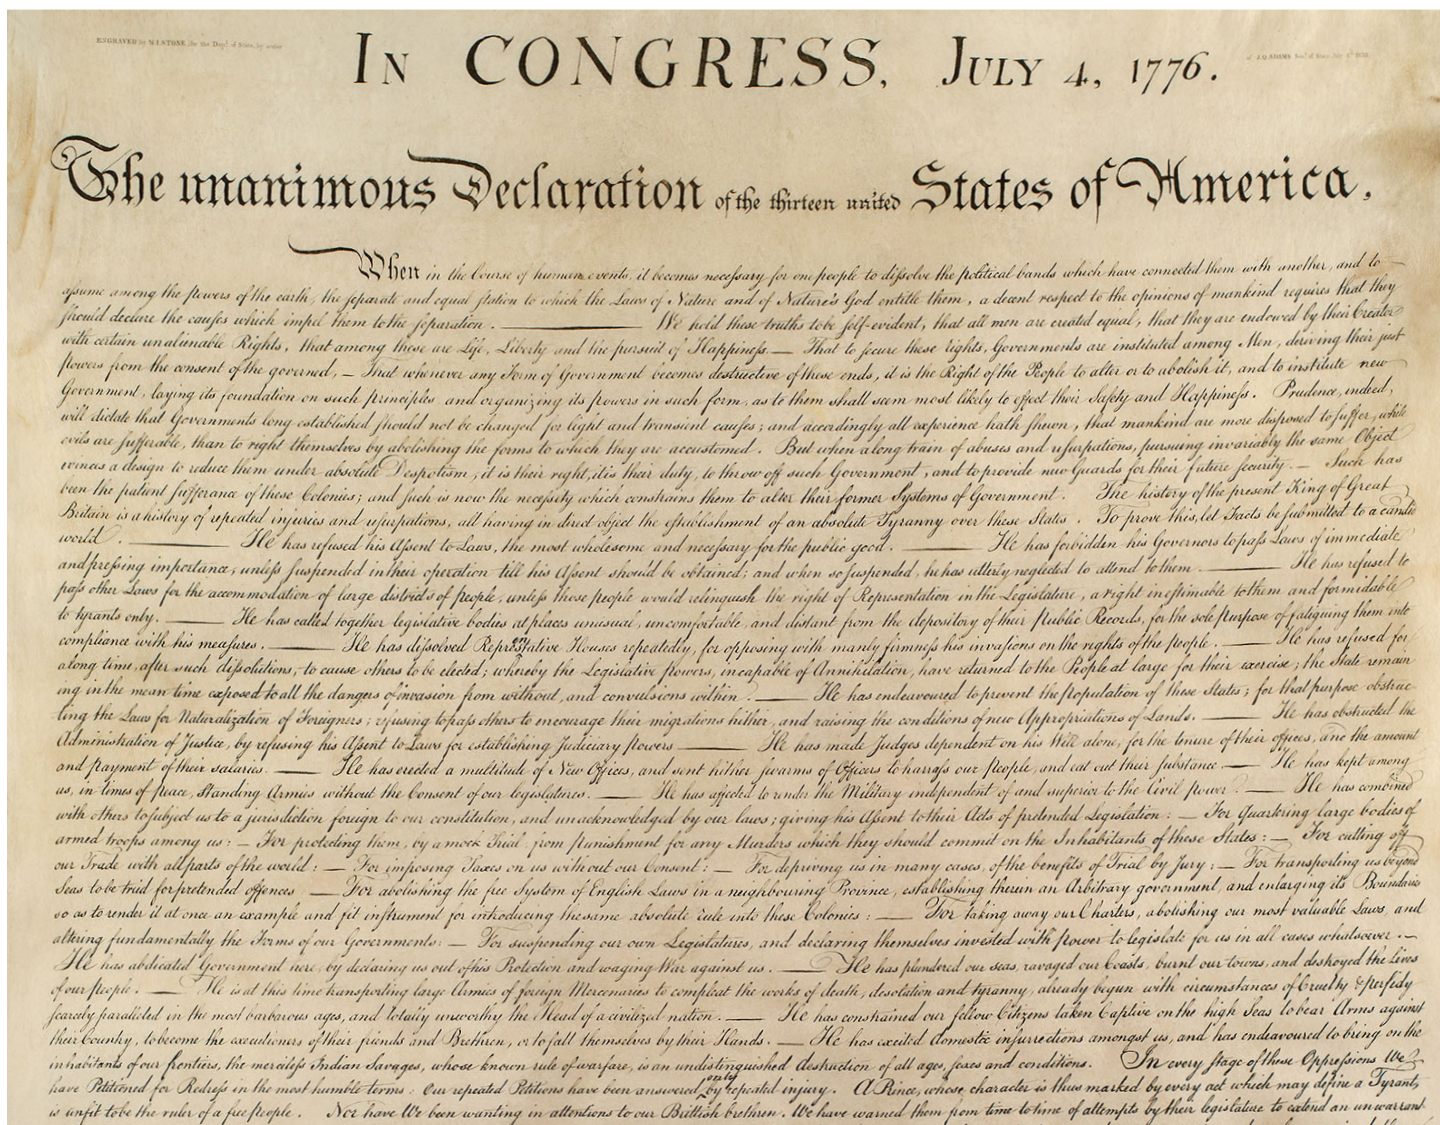 ENGRAVED by W.I.STONE, for the Dept. of State, by order
of J.Q.ADAMS Sec. of State July 4th 1823.
IN CONGRESS, JULY 4, 1776.
The unanimous Declaration of the thirteen united States of America,
When in the Course of human events, it becomes necessary for one people to dissolve the political bands which have connected them with another, and to
assume among the powers of the earth, the separate and equal station to which the Laws of Nature and of Nature's God entitle them, a decent respect to the opinions of mankind requires that they
should declare the causes which impel them to the separation. ——— We hold these truths to be self-evident, that all men are created equal, that they are endowed by their Creator
with certain unalienable Rights, that among these are Life, Liberty and the pursuit of Happiness. — That to secure these rights, Governments are instituted among Men, deriving their just
powers from the consent of the governed, — That whenever any Form of Government becomes destructive of these ends, it is the Right of the People to alter or to abolish it, and to institute new
Government, laying its foundation on such principles and organizing its powers in such form, as to them shall seem most likely to effect their Safety and Happiness. Prudence, indeed,
will dictate that Governments long established should not be changed for light and transient causes; and accordingly all experience hath shewn, that mankind are more disposed to suffer, while
evils are sufferable, than to right themselves by abolishing the forms to which they are accustomed. But when a long train of abuses and usurpations, pursuing invariably the same Object
evinces a design to reduce them under absolute Despotism, it is their right, it is their duty, to throw off such Government, and to provide new Guards for their future security. — Such has
been the patient sufferance of these Colonies; and such is now the necessity which constrains them to alter their former Systems of Government. The history of the present King of Great
Britain is a history of repeated injuries and usurpations, all having in direct object the establishment of an absolute Tyranny over these States. To prove this, let Facts be submitted to a candid
world. ——— He has refused his Assent to Laws, the most wholesome and necessary for the public good. ——— He has forbidden his Governors to pass Laws of immediate
and pressing importance, unless suspended in their operation till his Assent should be obtained; and when so suspended, he has utterly neglected to attend to them. ——— He has refused to
pass other Laws for the accommodation of large districts of people, unless those people would relinquish the right of Representation in the Legislature, a right inestimable to them and formidable
to tyrants only. ——— He has called together legislative bodies at places unusual, uncomfortable, and distant from the depository of their Public Records, for the sole purpose of fatiguing them into
compliance with his measures. ——— He has dissolved Representative Houses repeatedly, for opposing with manly firmness his invasions on the rights of the people. ——— He has refused for
a long time, after such dissolutions, to cause others to be elected; whereby the Legislative powers, incapable of Annihilation, have returned to the People at large for their exercise; the State remain-
ing in the mean time exposed to all the dangers of invasion from without, and convulsions within. ——— He has endeavoured to prevent the population of these States; for that purpose obstruc-
ting the Laws for Naturalization of Foreigners; refusing to pass others to encourage their migrations hither, and raising the conditions of new Appropriations of Lands. ——— He has obstructed the
Administration of Justice, by refusing his Assent to Laws for establishing Judiciary powers ——— He has made Judges dependent on his Will alone, for the tenure of their offices, and the amount
and payment of their salaries. ——— He has erected a multitude of New Offices, and sent hither swarms of Officers to harrass our people, and eat out their substance. ——— He has kept among
us, in times of peace, Standing Armies without the Consent of our legislatures. ——— He has affected to render the Military independent of and superior to the Civil power. ——— He has combined
with others to subject us to a jurisdiction foreign to our constitution, and unacknowledged by our laws; giving his Assent to their Acts of pretended Legislation: — For Quartering large bodies of
armed troops among us: — For protecting them, by a mock Trial, from punishment for any Murders which they should commit on the Inhabitants of these States: — For cutting off
our Trade with all parts of the world: — For imposing Taxes on us without our Consent: — For depriving us in many cases, of the benefits of Trial by Jury: — For transporting us beyond
Seas to be tried for pretended offences — For abolishing the free System of English Laws in a neighbouring Province, establishing therein an Arbitrary government, and enlarging its Boundaries
so as to render it at once an example and fit instrument for introducing the same absolute rule into these Colonies: — For taking away our Charters, abolishing our most valuable Laws, and
altering fundamentally the Forms of our Governments: — For suspending our own Legislatures, and declaring themselves invested with power to legislate for us in all cases whatsoever. —
He has abdicated Government here, by declaring us out of his Protection and waging War against us. ——— He has plundered our seas, ravaged our Coasts, burnt our towns, and destroyed the lives
of our people. — He is at this time transporting large Armies of foreign Mercenaries to compleat the works of death, desolation and tyranny, already begun with circumstances of Cruelty & perfidy
scarcely paralleled in the most barbarous ages, and totally unworthy the Head of a civilized nation. ——— He has constrained our fellow Citizens taken Captive on the high Seas to bear Arms against
their Country, to become the executioners of their friends and Brethren, or to fall themselves by their Hands. — He has excited domestic insurrections amongst us, and has endeavoured to bring on the
inhabitants of our frontiers, the merciless Indian Savages, whose known rule of warfare, is an undistinguished destruction of all ages, sexes and conditions. In every stage of these Oppressions We
have Petitioned for Redress in the most humble terms: Our repeated Petitions have been answered only by repeated injury. A Prince, whose character is thus marked by every act which may define a Tyrant,
is unfit to be the ruler of a free people. Nor have We been wanting in attentions to our Brittish brethren. We have warned them from time to time of attempts by their legislature to extend an unwarrant-